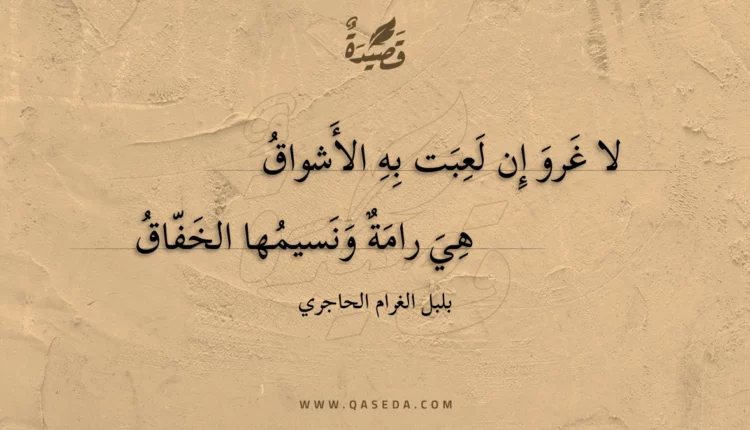 قَصِيدَةٌ
لا غَروَ إِن لَعِبَت بِهِ الأَشواقُ
هِيَ رامَةٌ وَنَسيمُها الخَفّاقُ
بلبل الغرام الحاجري
WWW.QASEDA.COM